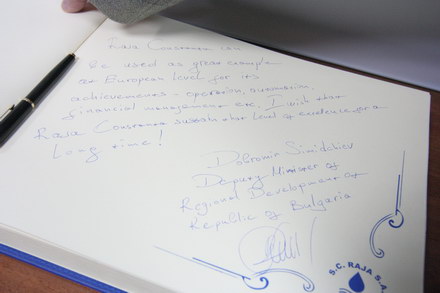 Raja Constanta can
be used as great example
at European level for its
achievements - operation, automation,
financial management etc. I wish that
Raja Constanta sustain that level of excellence for a
long time!
Dobromir Simidchiev
Deputy Minister of
Regional Development of
Republic of Bulgaria
S.C. RAJA S.A.